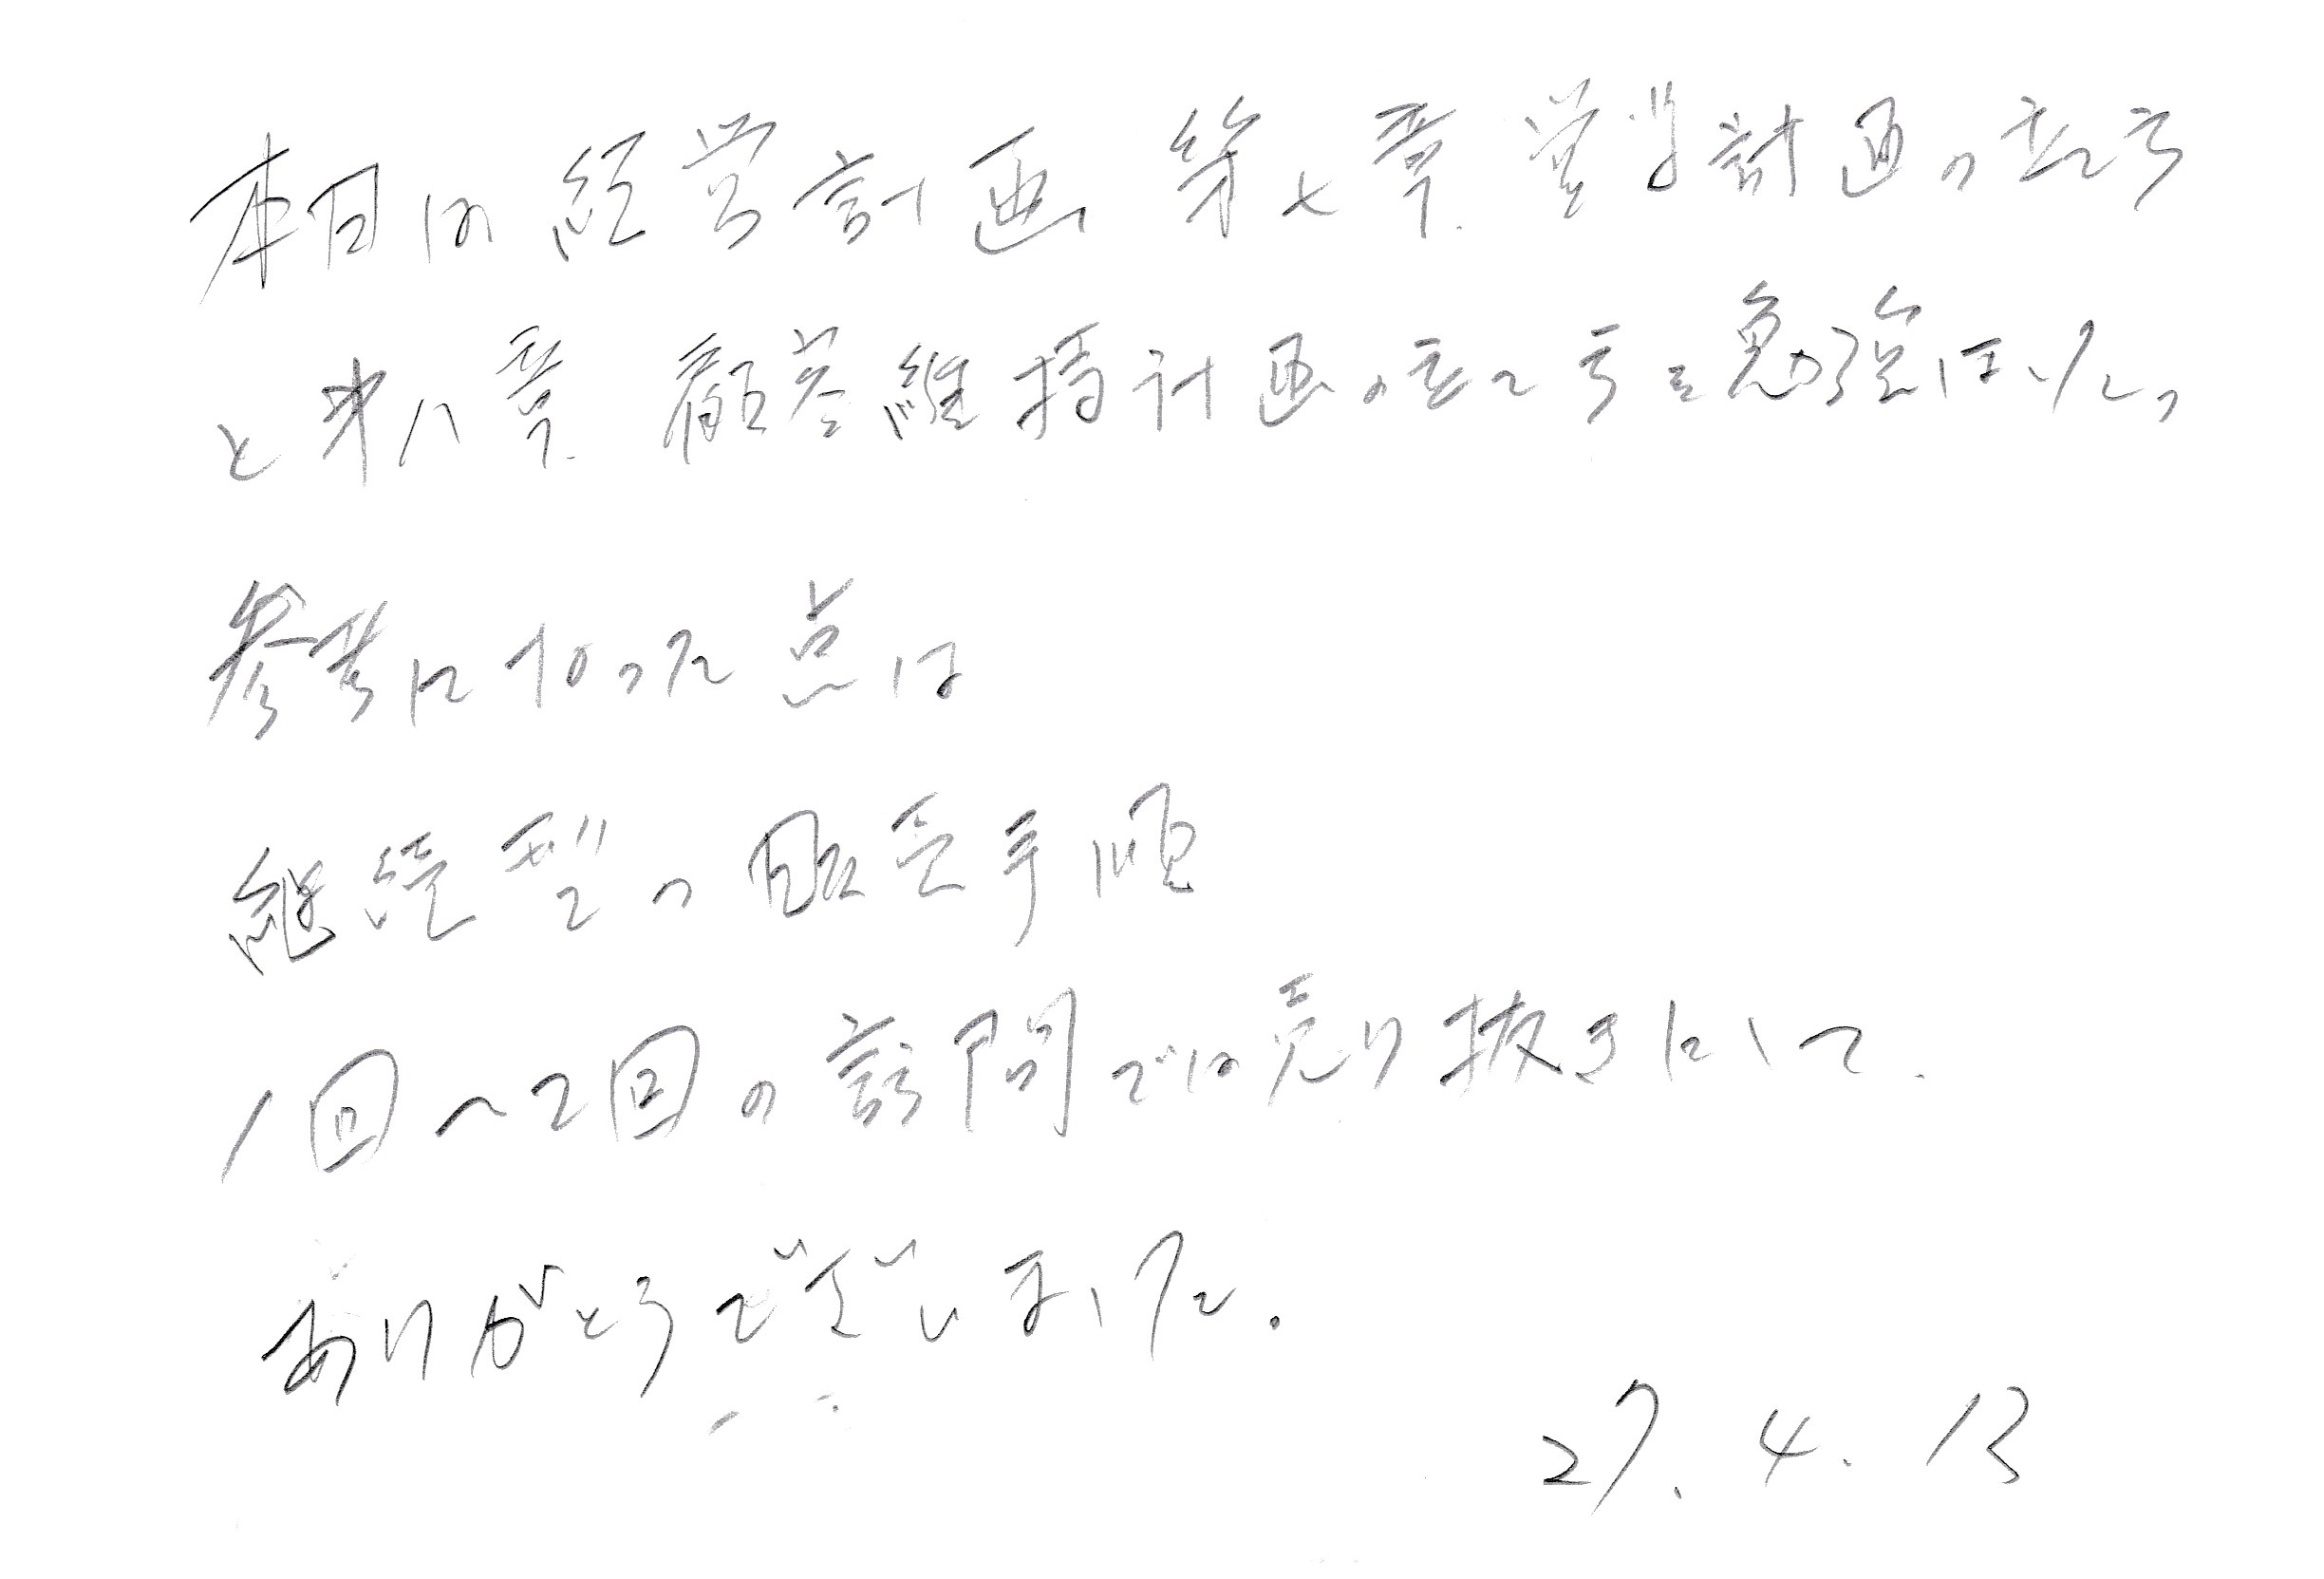 本日は経営計画 第七章.営業計画の立て方
と第八章.顧客維持計画の立て方を勉強しました
参考になった点は
継続型の販売手順
1回～2回の訪問では売り抜きにして.
ありがとうございました。
27.4.13